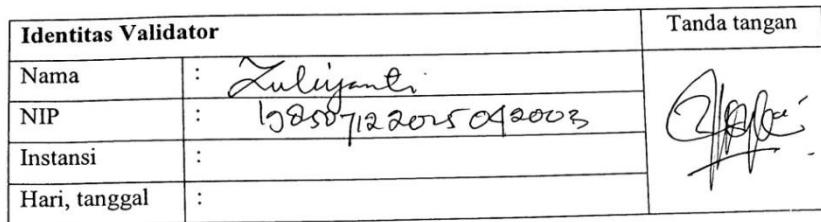 Identitas Validator Tanda tangan
Nama : Zuliyanti
NIP : 198507122015042003
Instansi :
Hari, tanggal :